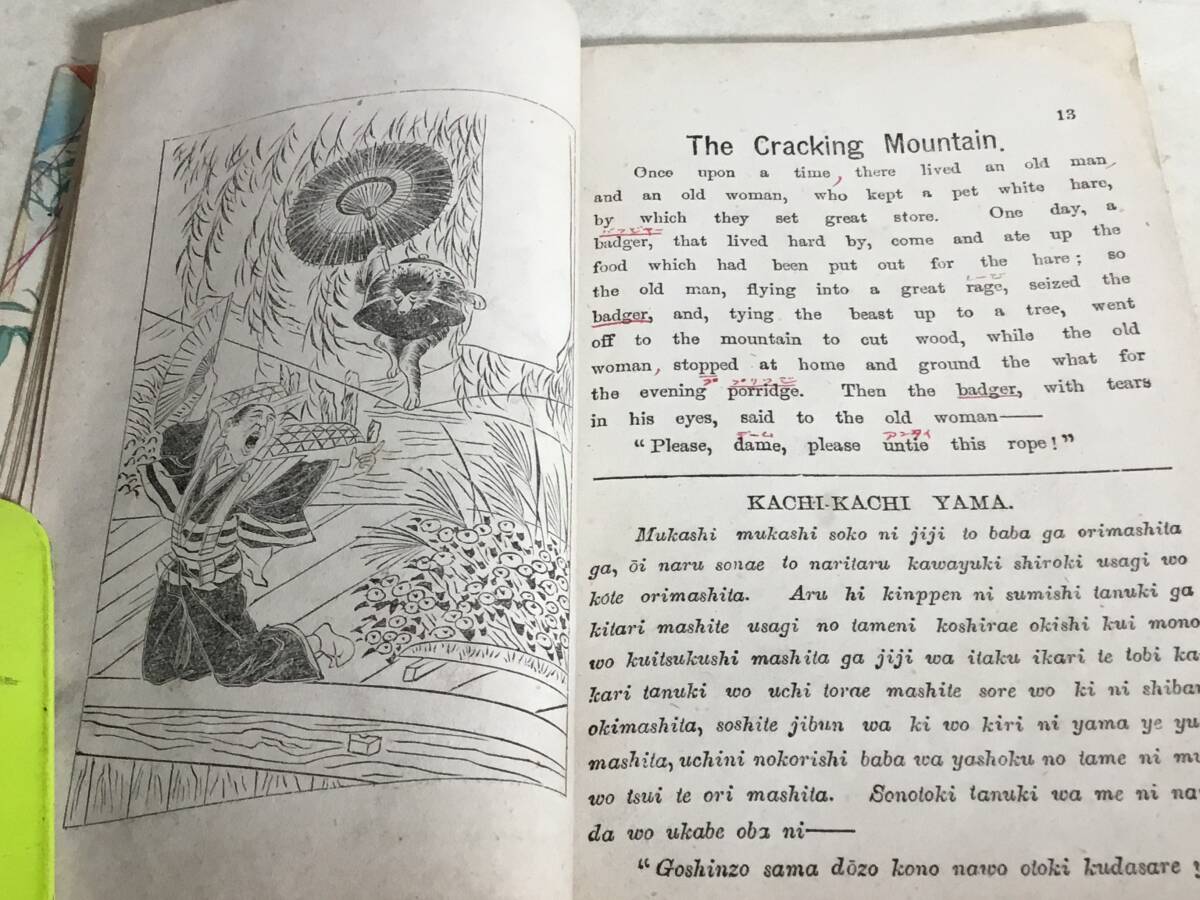 13
The Cracking Mountain.
Once upon a time, there lived an old man
and an old woman, who kept a pet white hare,
by which they set great store. One day, a
バッジャー
badger, that lived hard by, come and ate up the
food which had been put out for the hare; so
レージ
the old man, flying into a great rage, seized the
badger, and, tying the beast up to a tree, went
off to the mountain to cut wood, while the old
woman, stopped at home and ground the what for
the evening porridge. Then the badger, with tears
in his eyes, said to the old woman——
デーム アンタイ
"Please, dame, please untie this rope!"
KACHI-KACHI YAMA.
Mukashi mukashi soko ni jiji to baba ga orimashita
ga, ōi naru sonae to naritaru kawayuki shiroki usagi wo
kote orimashita. Aru hi kinppen ni sumishi tanuki ga
kitari mashite usagi no tameni koshirae okishi kui mono
wo kuitsukushi mashita ga jiji wa itaku ikari te tobi ka-
kari tanuki wo uchi torae mashite sore wo ki ni shibar
okimashita, soshite jibun wa ki wo kiri ni yama ye yu
mashita, uchini nokorishi baba wa yashoku no tame ni mu
wo tsui te ori mashita. Sonotoki tanuki wa me ni na
da wo ukabe oba ni——
"Goshinzo sama dōzo kono nawo otoki kudasare y